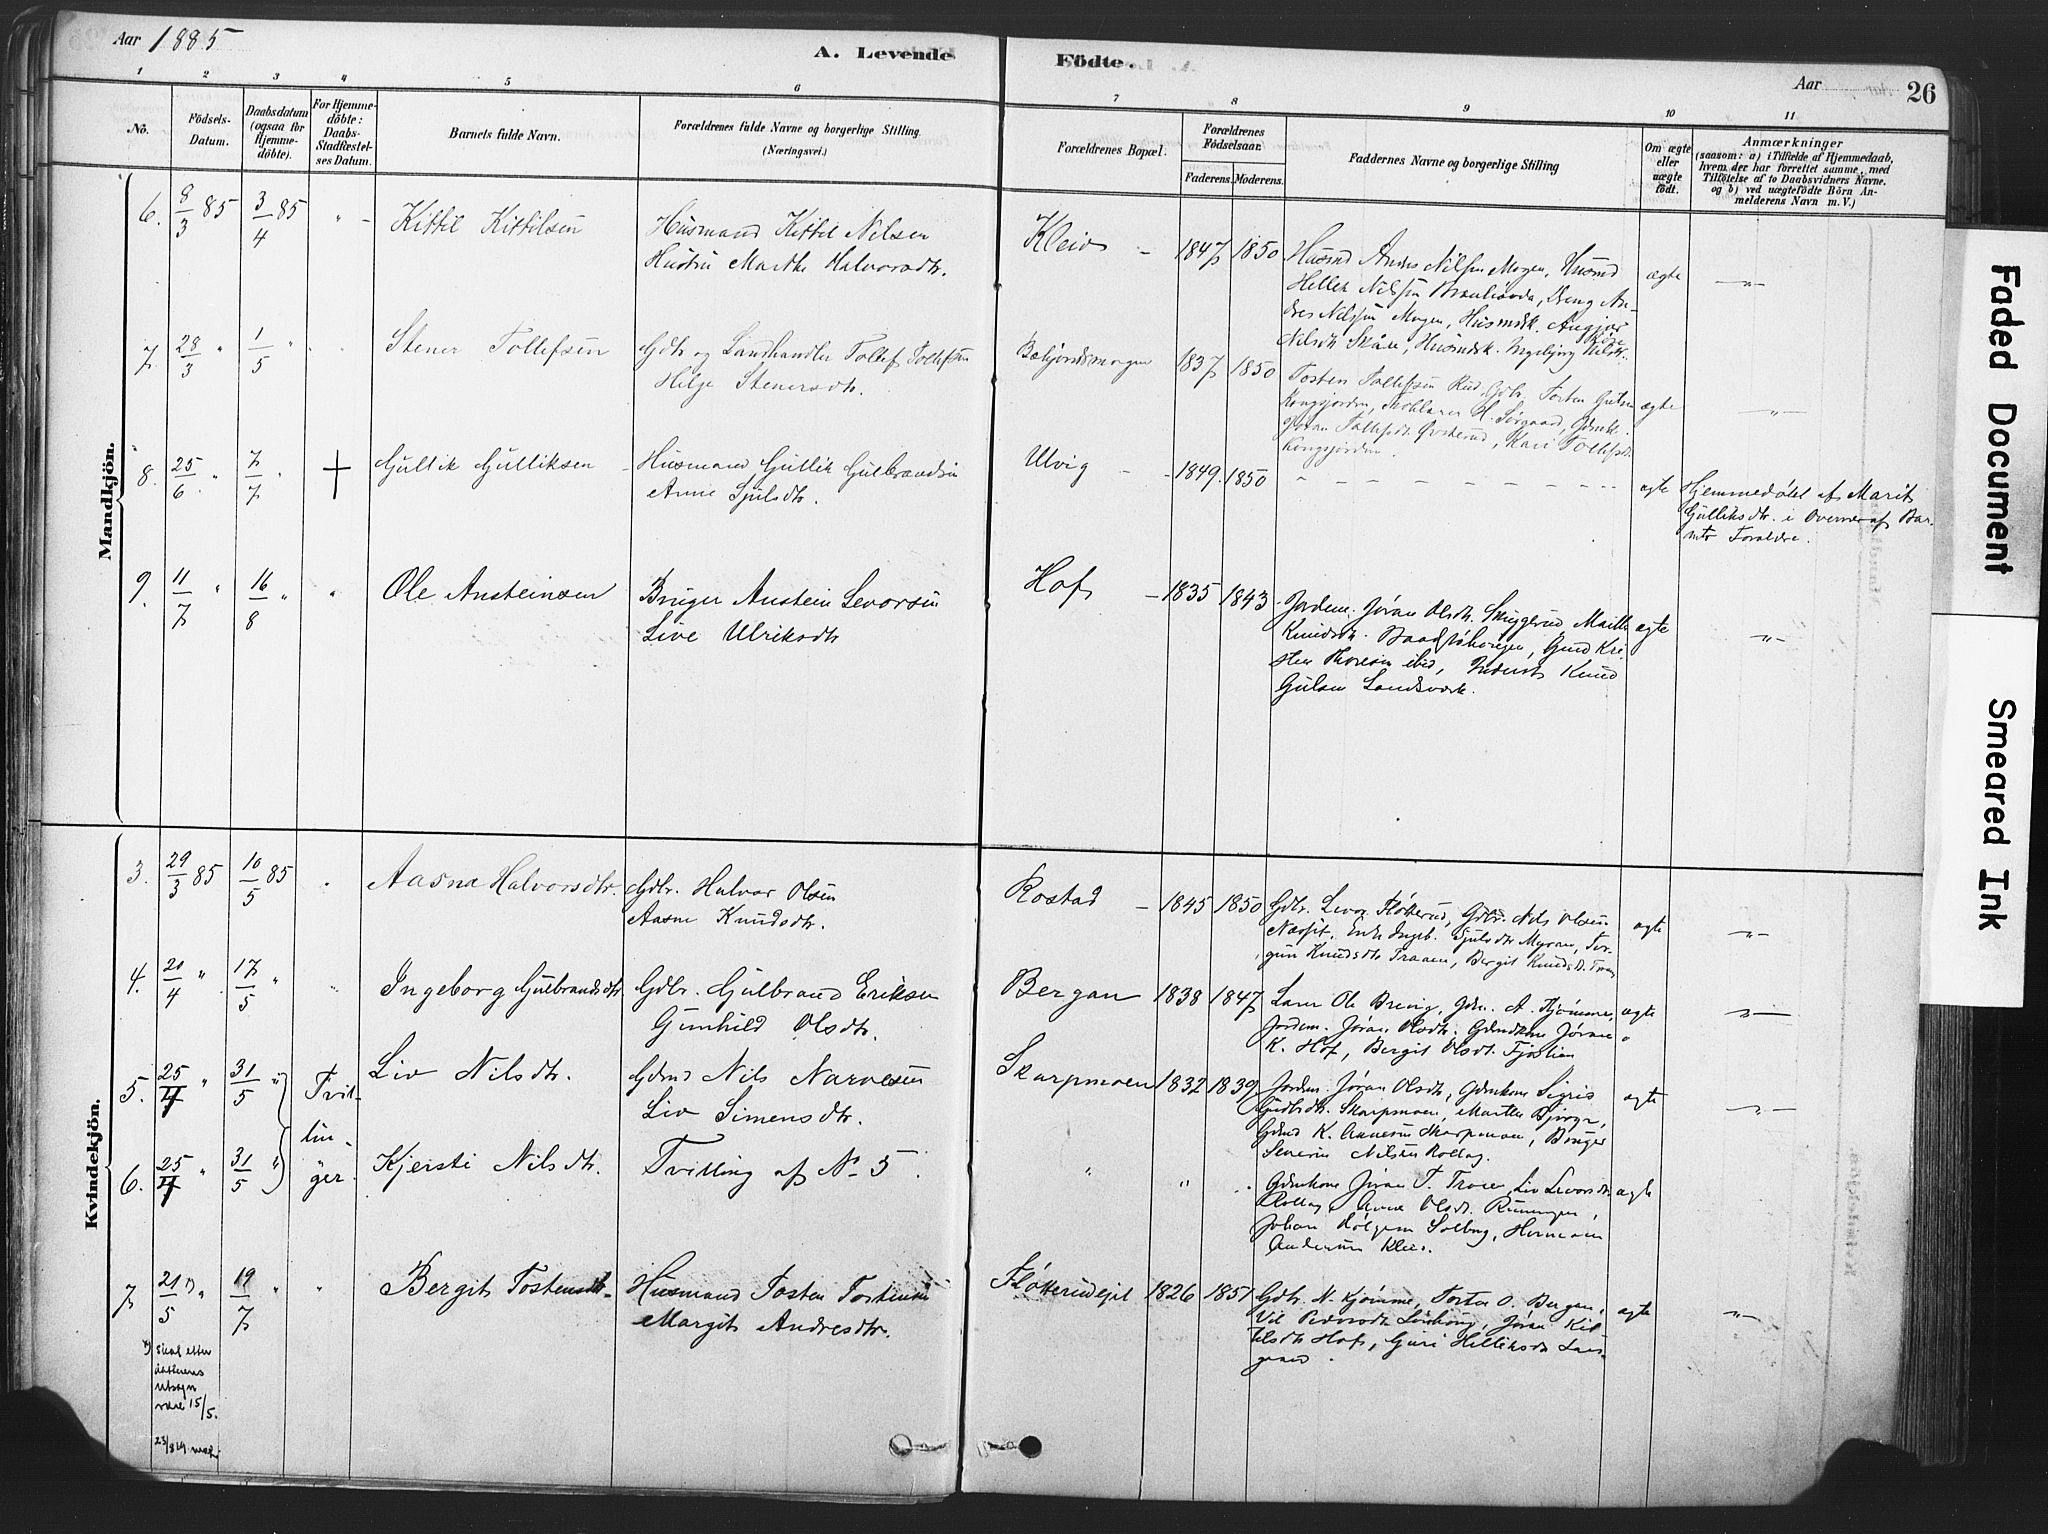 Aar 1885
A. Levende Födte.
Aar
26
1 2 3 4 5 6 7 8 9 10 11
No.
Födsels-
Datum.
Daabsdatum
(ogsaa for
Hjemme-
döbte).
For Hjemme-
döbte:
Daabs-
Stadfæstel-
ses Datum.
Barnets fulde Navn.
Forældrenes fulde Navne og borgerlige Stilling.
(Næringsvei.)
Forældrenes Bopæl.
Forældrenes
Födselsaar.
Faderens. Moderens.
Faddernes Navne og borgerlige Stilling
Om ægte
eller
uægte
födt.
Anmærkninger
(saasom: a) i Tilfælde af Hjemmedaab,
hvem der har forrettet samme, med
Tilföielse af to Daabsvidners Navne,
og b) ved uægtefödte Börn An-
melderens Navn m. V.)
Mandkjön.
6. 8/3 85 3/4 85 " Kittil Kittilsen
Husmand Kittil Nilsen
Hustru Marthe Halvorsdtr.
1847 1850
Husmd Anders Nilsen Mogen, Husmd
Hellek Nilsen
Nilsen Mogen, Husmdsk.
Nilsdtr. Husmdsk. Ingebjørg Nilsdtr.
ægte "
7. 28/3 " 1/5 " " Stener Tollefsen
Gdbr og Landhandler Tollef Tollefsen
Helge Stenersdtr.
1837 1850
Tosten Tollefsen Rud, Gdbr. Tosten
Kongsjorden, H. Sørgaard,
Kongsjorden.
ægte "
8. 25/6 " 7/7 " † Gullik Gulliksen
Husmand Gullik Gulbrandsen
Anne Sjulsdtr.
Ulvig 1849. 1850
ægte
Hjemmedøbt af Marit
Gulliksdtr. i Overvær af Bar-
nets Forældre.
9. 11/7 " 16/8 " " Ole Austeinsen
Bruger Austein Levorsen
Live Ulriksdtr
Hof 1835 1843
Jordem. Jøran Olsdtr. Skuggerud Marthe
Knudsdtr. Gmd Kri-
sten Thoresen ibid, Inderst Knud
Gulsen Landsverk.
ægte "
Kvindekjön.
3. 29/3 85 10/5 85 " Aasna Halvorsdtr.
Gdbr. Halvor Olsen
Aasne Knudsdtr.
Rostad 1845 1850
Gdbr. Levor Fløtterud, Gdbr. Nils Olsen
Enke Ingeb. Sjulsdtr Myran, Tor-
gun Knudsdtr Traaen, Bergit Knudsdtr.
ægte "
4. 20/4 " 17/5 " " Ingeborg Gulbrandsdtr
Gdbr. Gulbrand Eriksen
Gunhild Olsdtr.
Bergan 1838 1847
Ole Brevig, A. Kjømme,
Jordem. Jøran Olsdtr. Gdmdkone Jøran
K. Hof, Bergit Olsdt.
ægte "
5. 25/4 " 31/5 " Tvil-
lin-
ger.
Liv Nilsdtr.
Gdmd Nils Narvesen
Liv Simensdtr.
Skarpmoen 1832 1839
Jordem. Jøran Olsdtr, Gdmkone Sigris
Gudbrdtr. Skarpmoen, Marthe
Gdmd K. Skarpmoen, Bruger
Severin Nilsen Rollag.
ægte "
6. 25/4 " 31/5 " Kjersti Nilsdtr.
Tvilling af No 5.
" " "
Gdmkone Jøran T. Liv Levorsdtr
Rollag, Anne Olsdt.
Johan Solberg, Herman
Andersen
ægte
7. 21/5 *) " 19/7 " " Bergit Tostensdtr.
Husmand Tosten Tostensen
Margit Andresdtr.
Fløtterudejet 1826 1857
Gdbr. N. Kjømme, Tosten O. Bergan,
Jøran Kit-
telsdtr Hof, Guri Helliksdtr
ægte "
*) skal efter
faderens
utsagn
være 15/5.
Faded Document
Smeared Ink